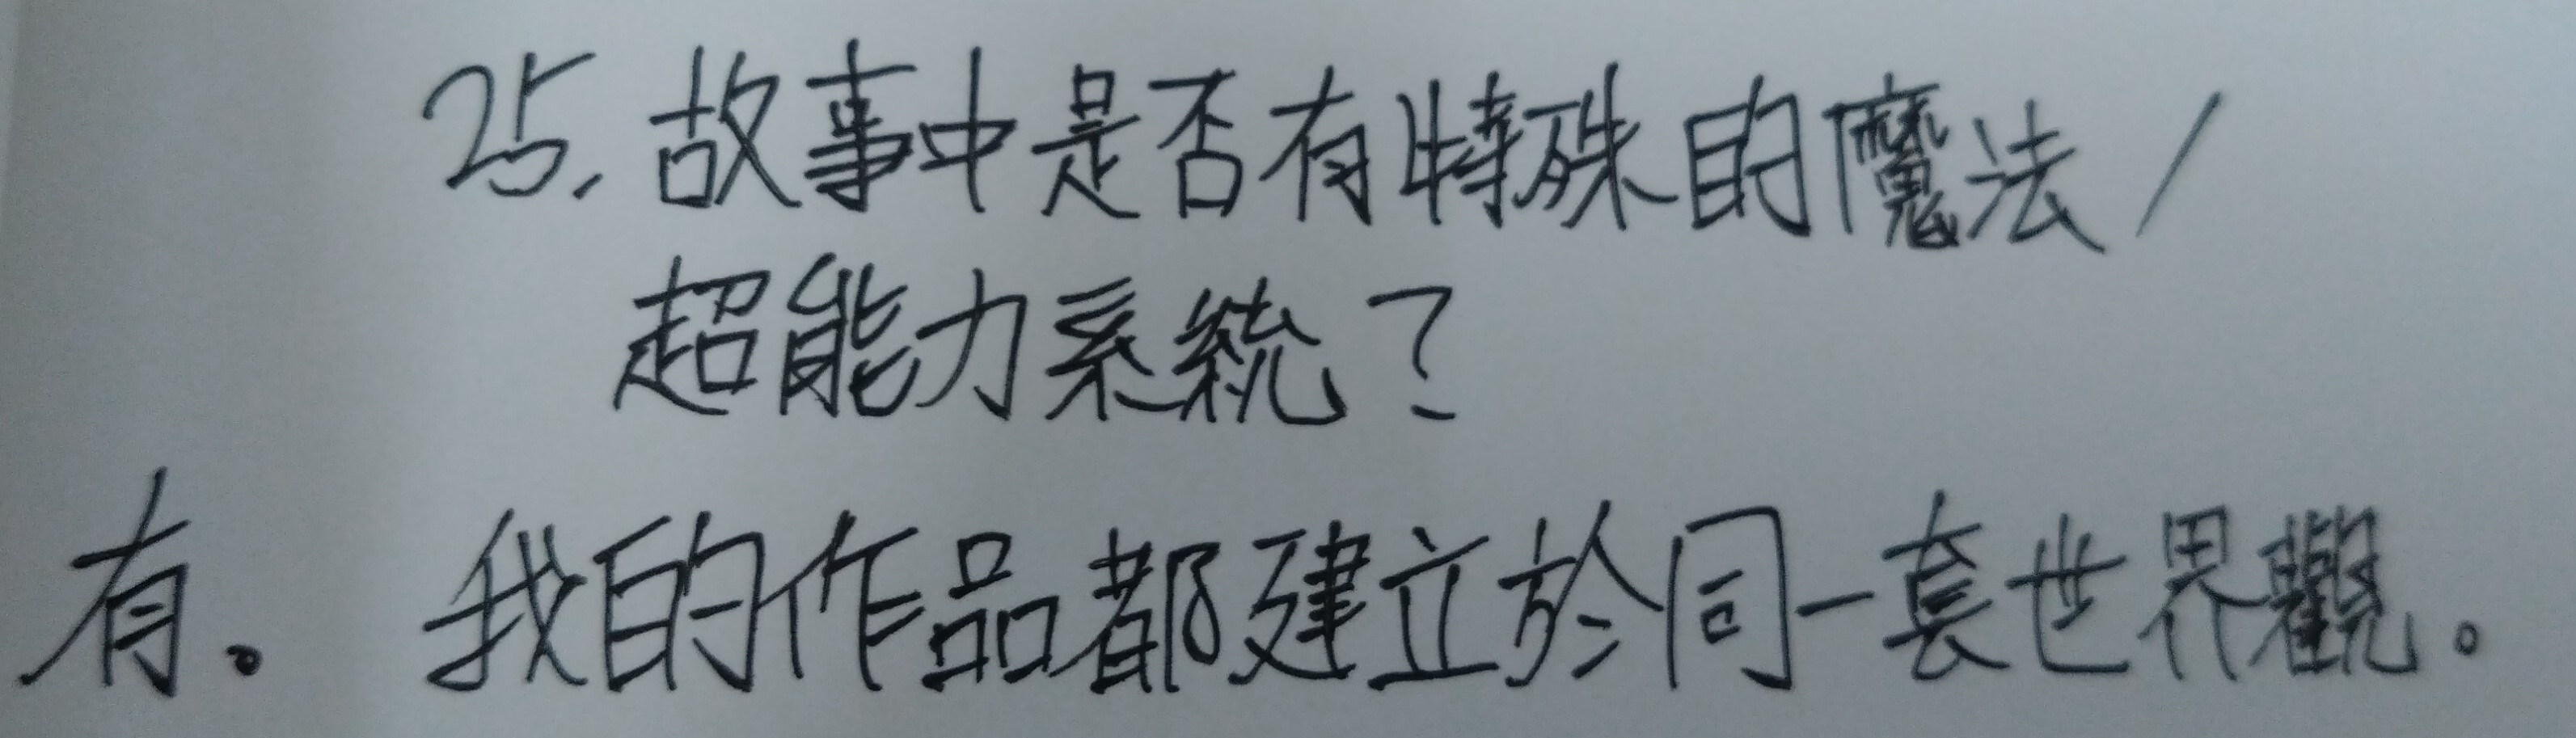 25. 故事中是否有特殊的魔法/
超能力系統?
有。我的作品都建立於同一套世界觀。